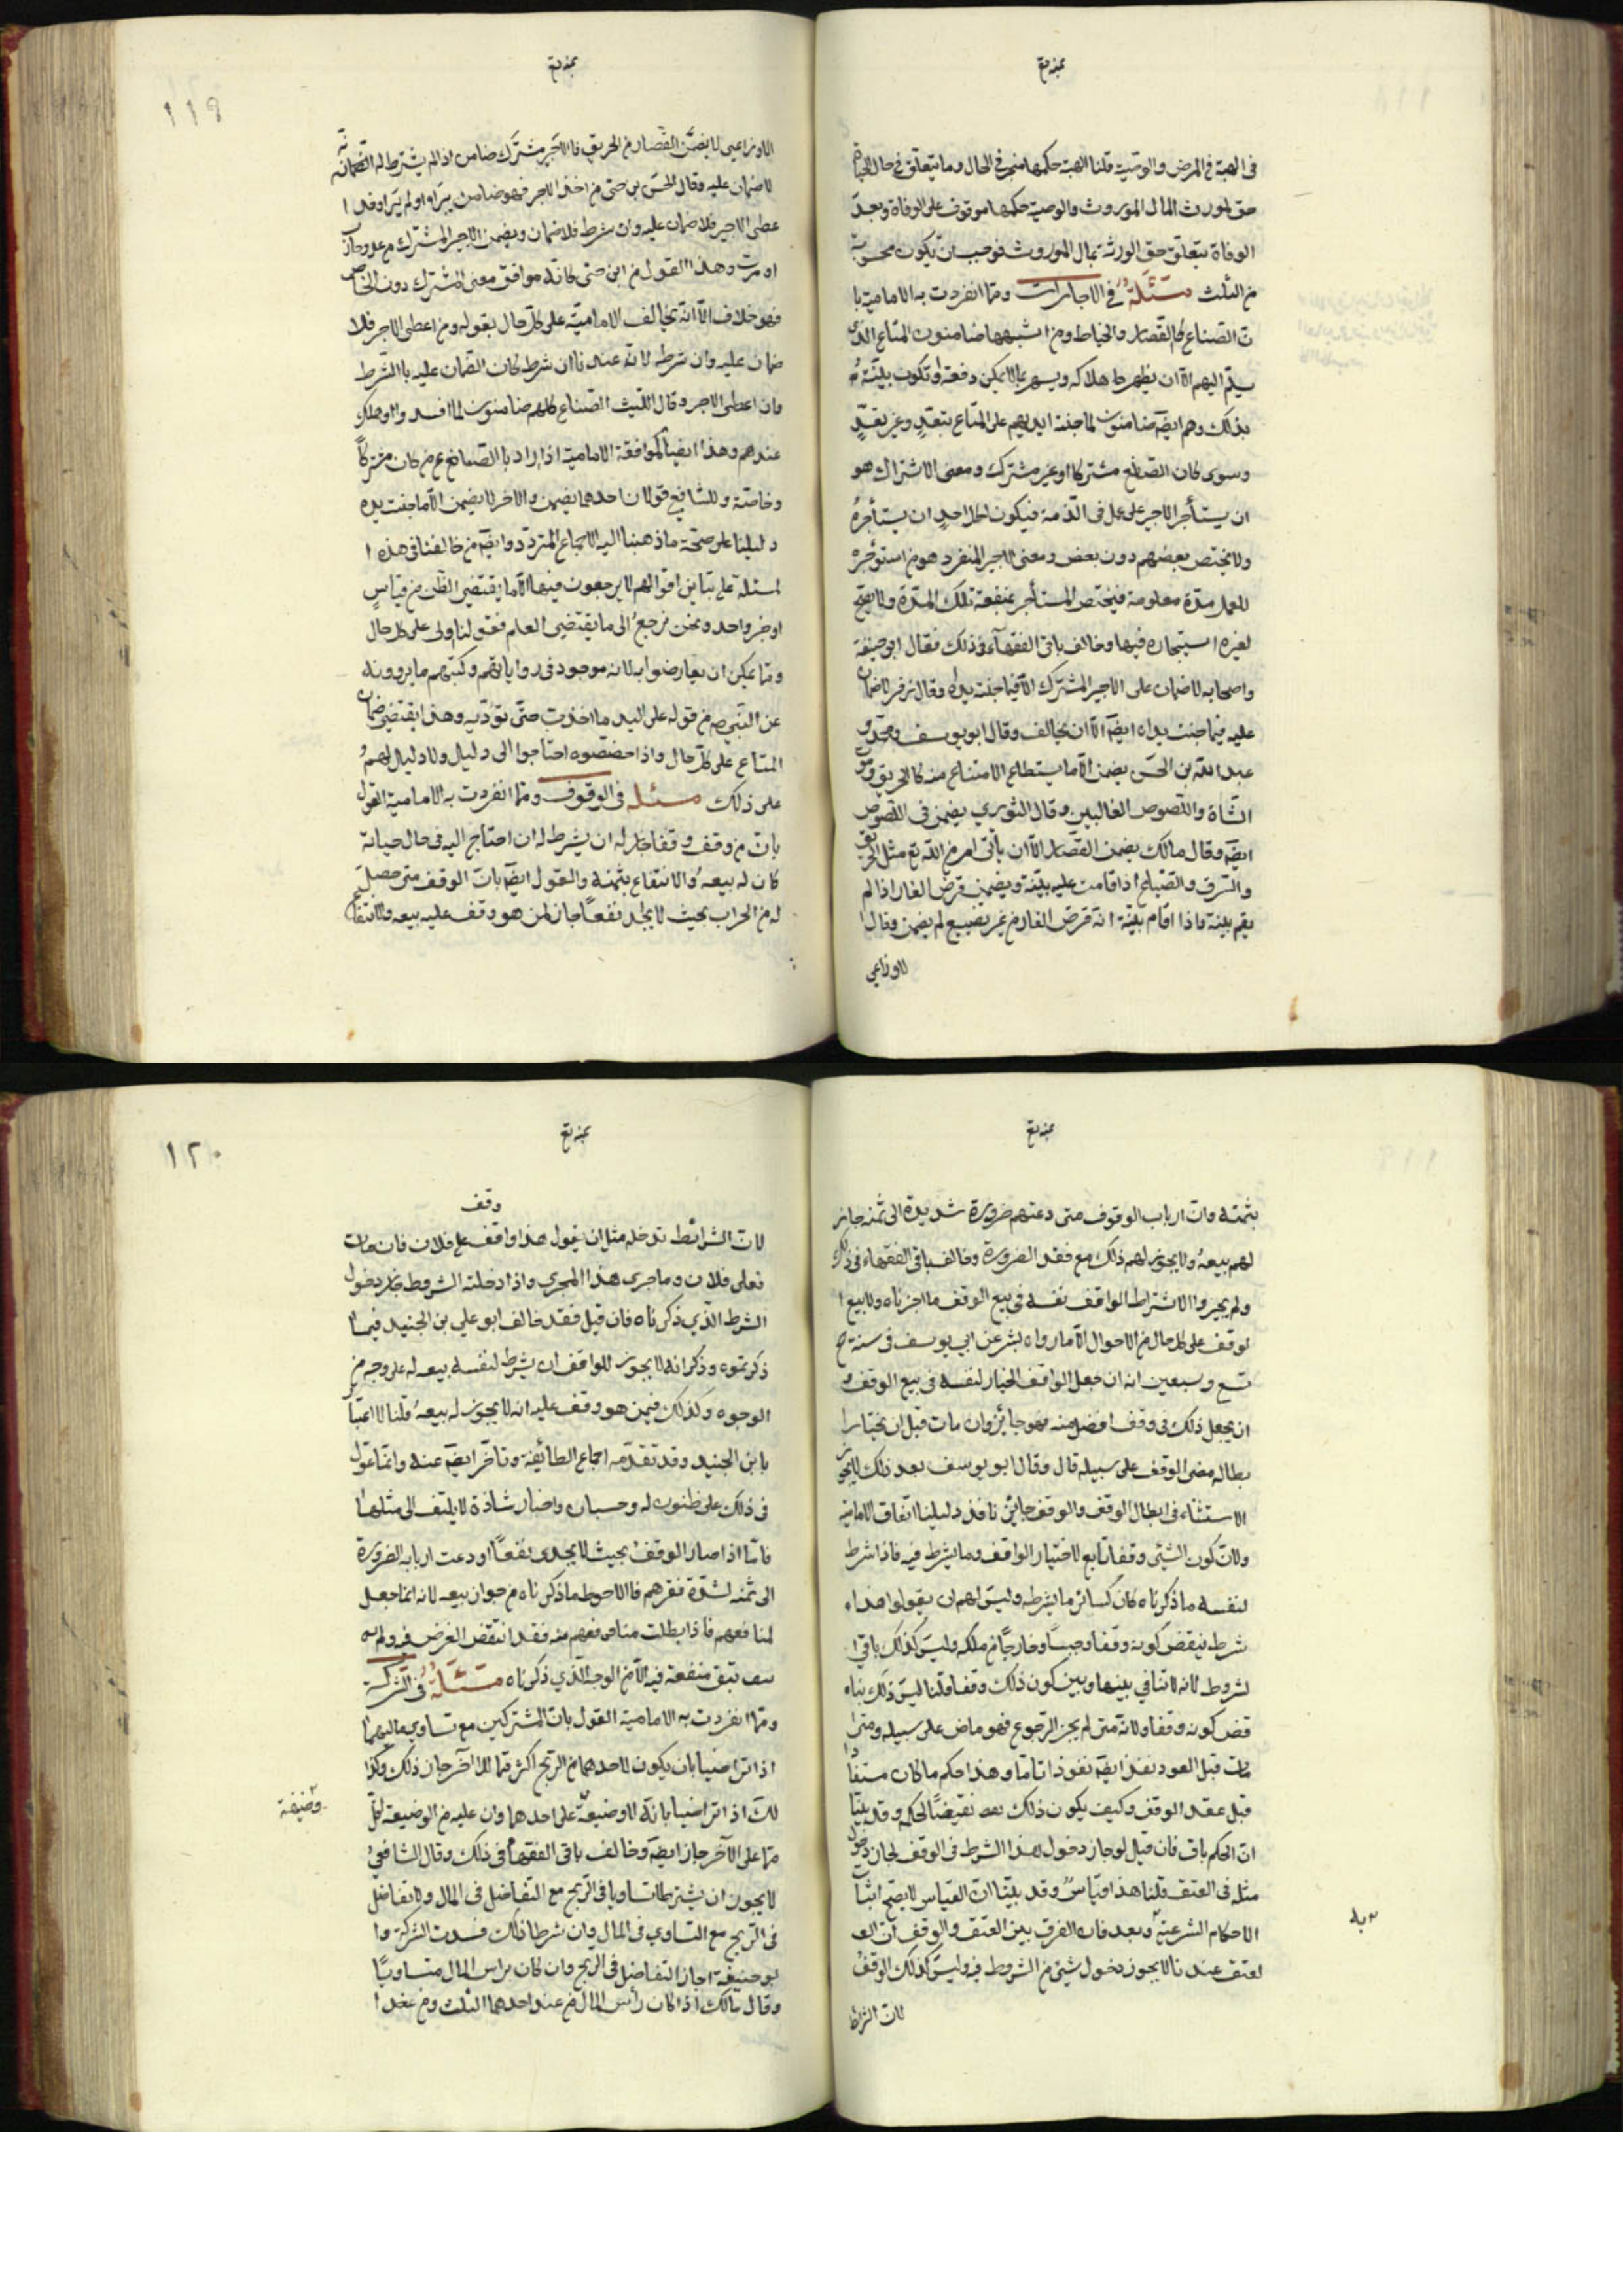 في الهبة في المرض والوصية قلنا الهبة حكمها منجز في الحال وما يتعلق في حال الحياة
حق لمورث المال الموروث والوصية حكمها موقوف على الوفاة وبعد
الوفاة يتعلق حق الورثة بمال الموروث فوجب ان يكون محسوبة
من الثلث مسئلة في الاجارات ومما انفردت به الامامية با
ن الصناع كالقصار والخياط ومن اشبهها ضامنون للمتاع الذي
يسلم اليهم الا ان يظهر هلاكه ويشهر بما لا يمكن دفعه او تكون بينة
بذلك وهم ايضا ضامنون لما جنته ايديهم على المتاع بتعد وغير تعد
وسوى كان الصانع مشتركا او غير مشترك ومعنى الاشتراك هو
ان يستأجر الاجير على عمل في الذمة فيكون لكل احد ان يستأجره
ولا يختص بعضهم دون بعض ومعنى الاجير المنفرد هو من استوجر
للعمل مدة معلومة فيختص المستأجر بمنفعة تلك المدة ولا يصح
لغيره استيجاره فيها وخالف باقي الفقهاء في ذلك فقال ابو حنيفة
واصحابه لا ضمان على الاجير المشترك الا فيما جنت يداه وقال زفر لا ضمان
عليه فيما جنت يداه ايضا الا ان يخالف وقال ابو يوسف ومحمد و
عبد الله بن الحسن يضمن الا ما يستطاع الامتناع منه كالحريق وموت
الشاة واللصوص الغالبين وقال الثوري يضمن في اللصوص
ايضا وقال مالك يضمن القصار الا ان يأتي امر من الله تع مثل الحريق
والسرق والضياع اذا قامت عليه بينة ويضمن قرض الفار اذا لم
يقم بينة واذا اقام بينة انه قرض الفار من غير تضييع لم يضمن وقال ا
لاوزاعي
١١٩
الاوزاعي لا يضمن القصار من الحريق والاجير مشترك ضامن اذا لم يشترط له انه
لا ضمان عليه وقال الحسن بن حي من اخذ الاجر فهو ضامن تبرأ او لم يتبرأ وقد ا
عطى الاجير فلا ضمان عليه وان شرط فلا ضمان ويضمن الاجير المشترك
وهذا القول من ابن حي كانه موافق معنى المشترك دون الخاص
فهو خلاف الا انه يخالف الامامية على كل حال بقوله ومن اعطى الاجر فلا
ضمان عليه وان شرط لانه عندنا ان شرط كان الضمان عليه بالشرط
وان اعطى الاجر وقال الليث الصناع كلهم ضامنون لما افسدوا او هلك
عندهم وهذا ايضا كموافقة الامامية اذا اراد بالصانع من كان مشتركا
وخاصة وللشافعي قولان احدهما يضمن والاخر لا يضمن الا ما جنت يده
دليلنا على صحة ما ذهبنا اليه الاجماع المتردد وايضا من خالفنا في هذه ا
لمسئلة على تباين اقوالهم لا يرجعون فيها الا ما يقتضي الظن من قياس
او خبر واحد ونحن نرجع الى ما يقتضي العلم فقولنا اولى على كل حال
ومما يمكن ان يعارضوا به لانه موجود في رواياتهم وكتبهم ما يروونه
عن النبي ص من قوله على اليد ما اخذت حتى تؤديه وهذا يقتضي ضمان
المتاع على كل حال واذا خصصوه احتاجوا الى دليل ولا دليل لهم
على ذلك مسئلة في الوقوف ومما انفردت به الامامية القول
بان من وقف وقفا جاز له ان يشرط له ان احتاج اليه في حال حياته
كان له بيعه والانتفاع بثمنه والقول ايضا بان الوقف متى حصل
له من الخراب بحيث لا يجد نفعا جاز لمن هو وقف عليه بيعه والانتفاع
بثمنه وان ارباب الوقوف متى دعتهم ضرورة شديدة الى ثمنه جاز
لهم بيعه ولا يجوز لهم ذلك مع فقد الضرورة وخالف باقي الفقهاء في ذلك
ولم يجيزوا الاشتراط الواقف نفسه في بيع الوقف ما اجزناه ولا بيع ا
لوقف على كل حال من الاحوال الا ما رواه بشر عن ابي يوسف في سنة
تسع وسبعين انه ان جعل الواقف الخيار لنفسه في بيع الوقف و
ان يجعل ذلك في وقف افضل منه فهو جائز وان مات قبل ان يختار ا
بطاله مضى الوقف على سبيله قال وقال ابو يوسف بعد ذلك لا يجوز
الاستثناء في ابطال الوقف والوقف جايز نافذ دليلنا اتفاق الامامية
ولان كون الشئ وقفا تابع لاختيار الواقف وما يشرط فيه فاذا شرط
لنفسه ما ذكرناه كان كسائر ما يشرطه وليس لهم ان يقولوا هذا
شرط ينقض كونه وقفا وحبسا وخارجا من ملكه وليس كذلك باقي ا
لشروط لانه لا تنافي بينها وبين كون ذلك وقفا قلنا ليس ذلك بنا
قض كونه وقفا ولانه متى لم يجز الرجوع فهو ماض على سبيله ومتى
مات قبل العود نفذ ايضا نفوذا تاما وهذا حكم ما كان مستفادا
قبل عقد الوقف وكيف يكون ذلك نقيضا لحكم وقد بينا
ان الحكم باق فان قيل لو جاز دخول هذا الشرط في الوقف لجاز دخول
مثله في العتق قلنا هذا قياس وقد بينا ان القياس لا يصح اثبات
الاحكام الشرعية وبعد فان الفرق بين العتق والوقف ان ا
لعتق عندنا لا يجوز دخول شئ من الشروط فيه وليس كذلك الوقف
لان الشرائط
به
١٢٠
وقف
لان الشرائط تدخله مثل ان يقول هذا واقف على فلان فان مات
فعلى فلان وما جرى هذا المجرى واذا دخلته الشروط جاز دخول
الشرط الذي ذكرناه فان قيل فقد خالف ابو علي بن الجنيد فيما
ذكرتموه وذكر انه لا يجوز للواقف ان يشرط لنفسه بيعه له على وجه من
الوجوه وكذلك فيمن هو وقف عليه انه لا يجوز له بيعه قلنا لا اعتبار
بابن الجنيد وقد تقدمه اجماع الطائفة وتاخر ايضا عنه وانما عول
في ذلك على ظنون له وحسبان واخبار شاذة لا يلتفت الى مثلها
فاما اذا صار الوقف بحيث لا يجدى نفعا او دعت اربابه الضرورة
الى ثمنه لشدة فقرهم فالاحوط ما ذكرناه من جواز بيعه لانه انما جعل
لمنافعهم فاذا بطلت منافعهم منه فقد انتقض الغرض فيه ولم
يبق منفعة فيه الا من الوجه الذي ذكرناه مسئلة في الشركة
ومما انفردت به الامامية القول بان المشتركين مع تساوي ماليهما
اذا تراضيا بان يكون لاحدهما من الربح اكثر مما للاخر جاز ذلك وكذ
لك اذا تراضيا بانه لا وضيعة على احدهما وان عليه من الوضيعة اقل
مما على الآخر جاز ايضا وخالف باقي الفقهاء في ذلك وقال الشافعي
لا يجوز ان يشترطا تساويا في الربح مع التفاضل في المال ولا تفاضل
في الربح مع التساوي في المال وان شرطا ذلك فسدت الشركة وا
بو حنيفة اجاز التفاضل في الربح وان كان راس المال متساويا
وقال مالك اذا كان رأس المال من عند احدهما الثلث ومن عند ا
وضيعة